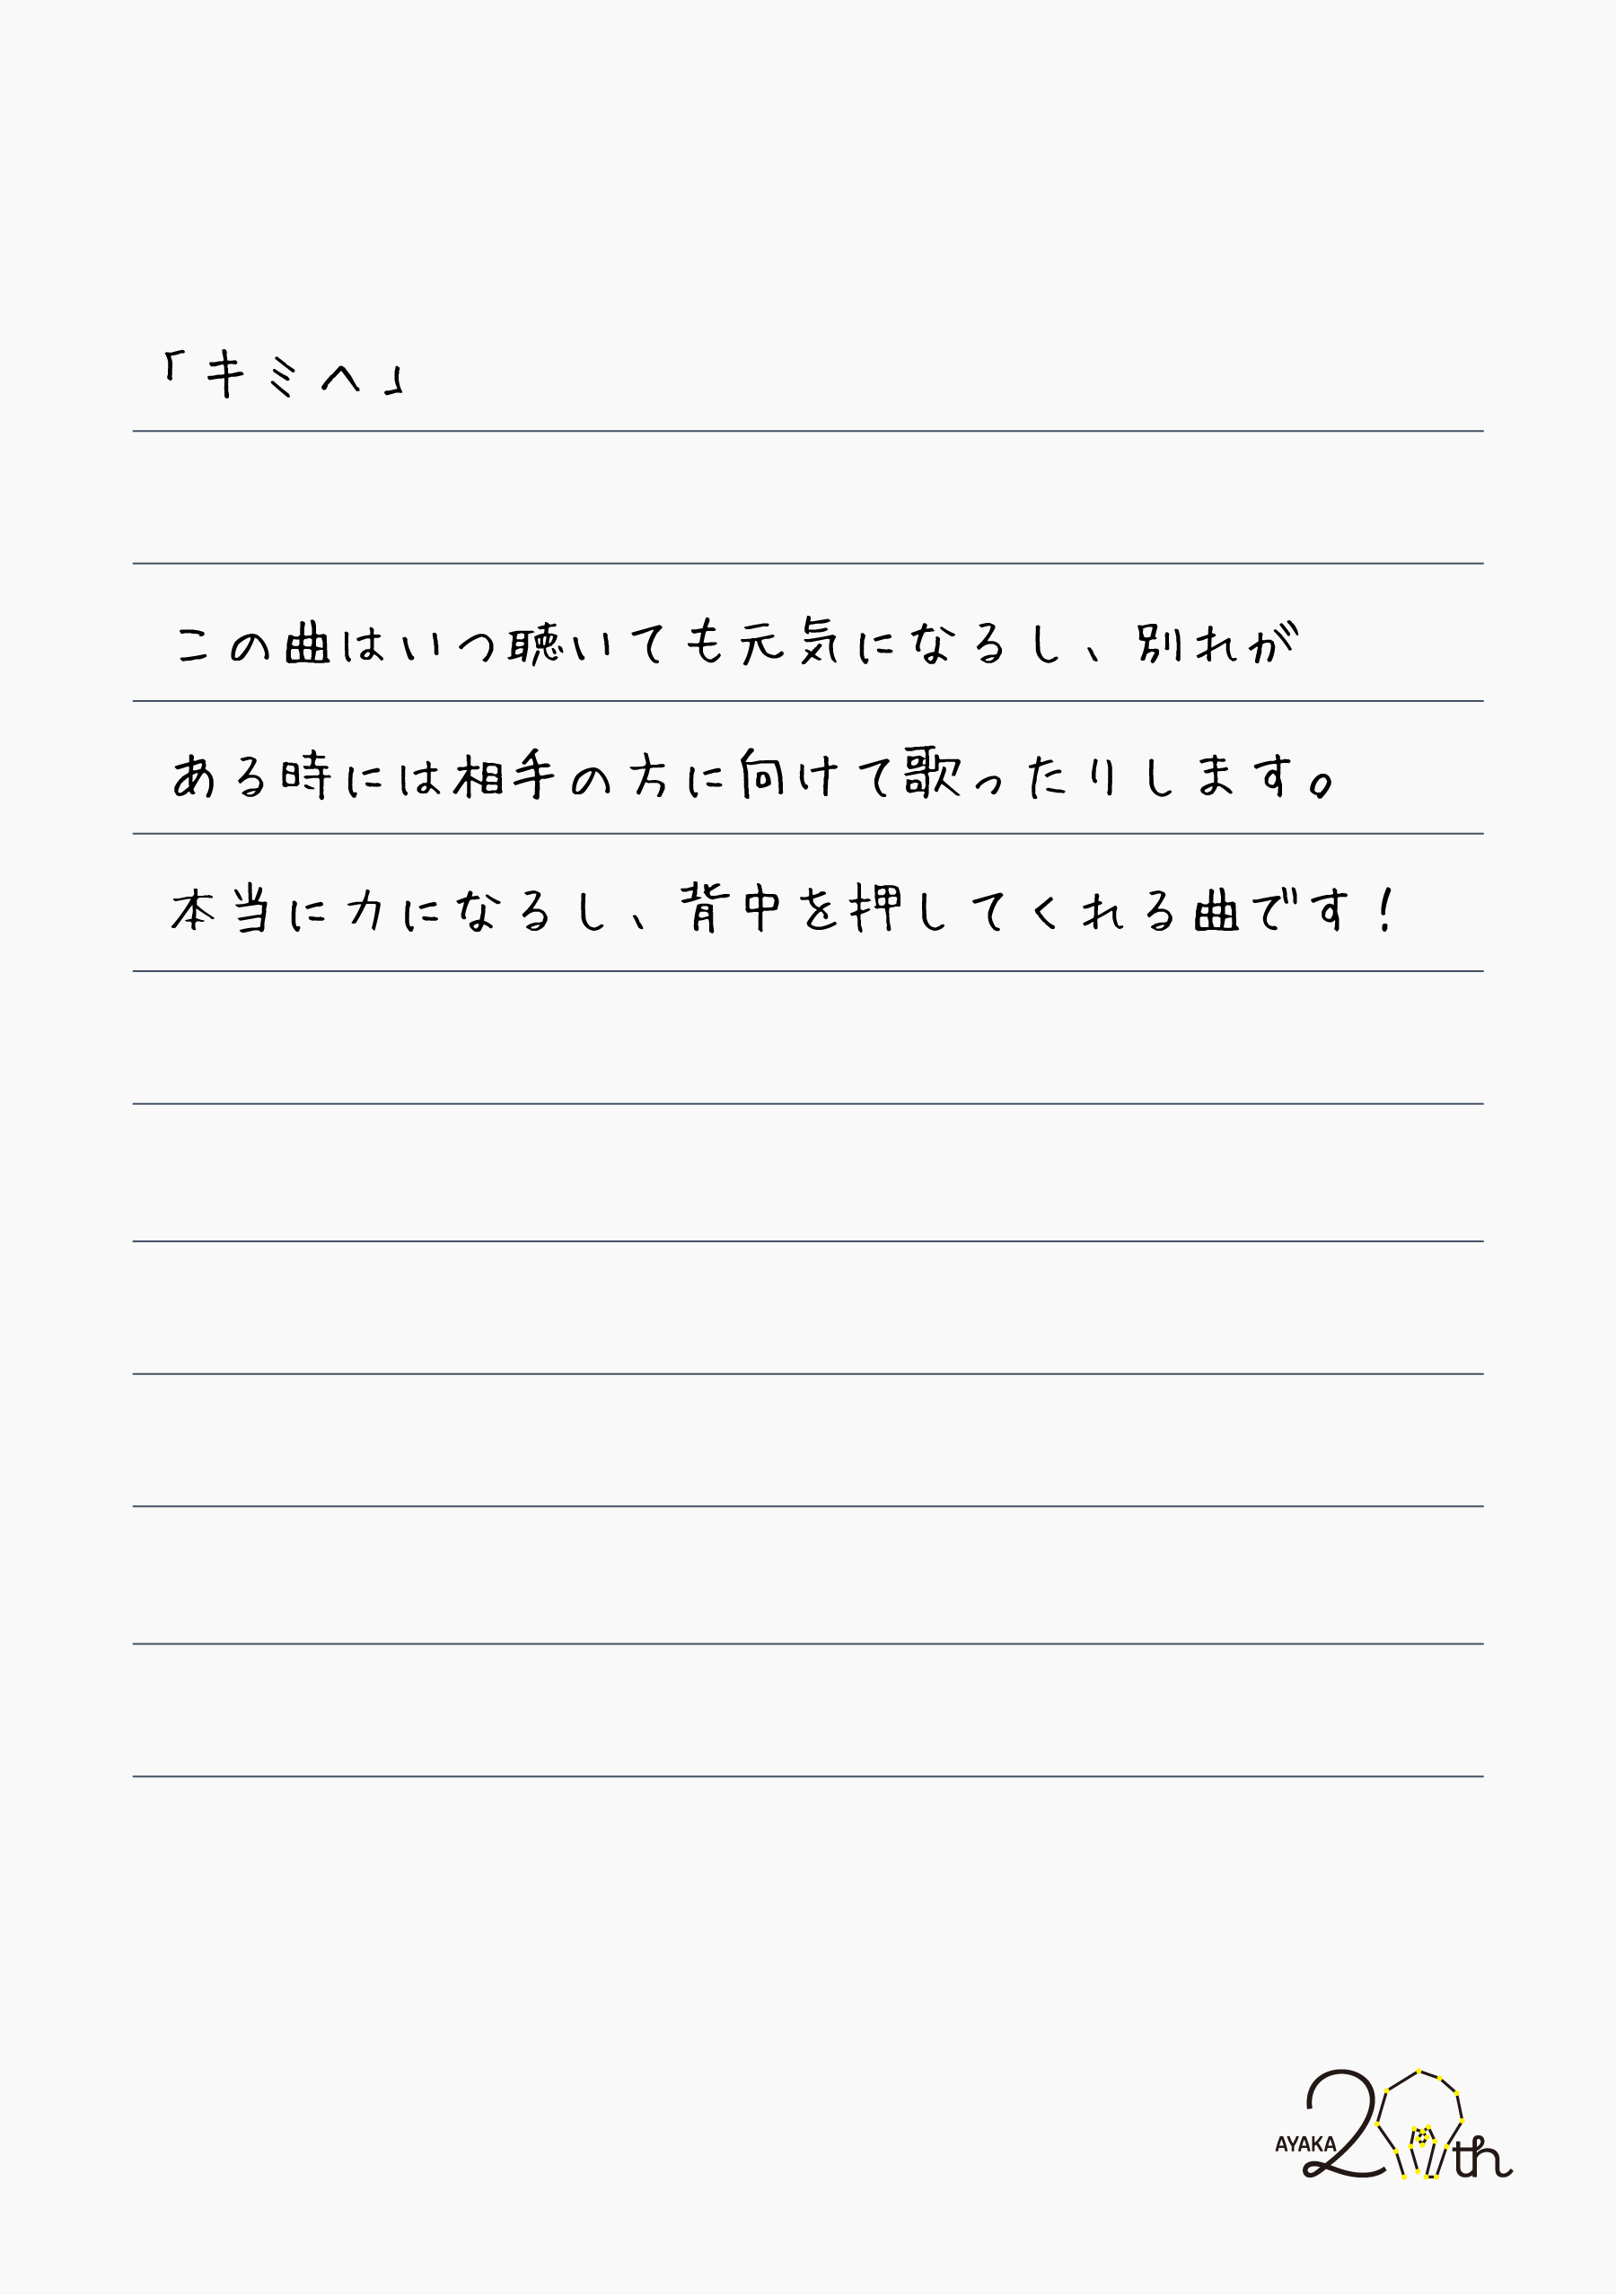 「キミへ」
この曲はいつ聴いても元気になるし、別れが
ある時には相手の方に向けて歌ったりします。
本当に力になるし、背中を押してくれる曲です！
AYAKA 20th